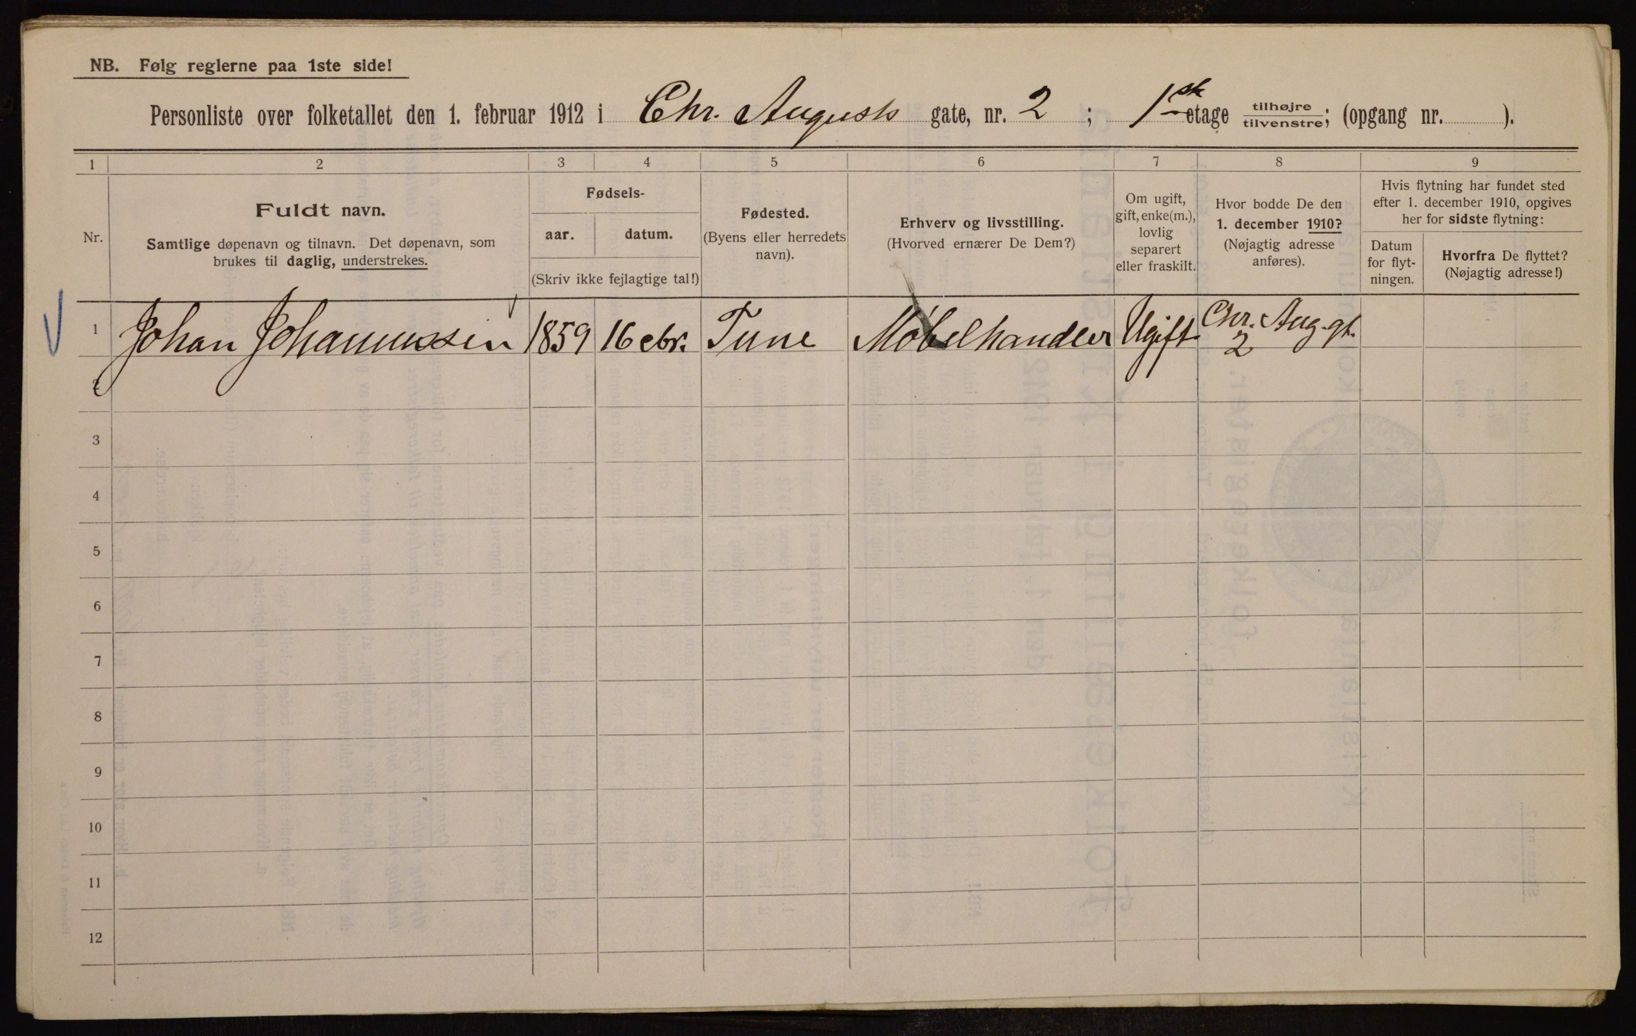 NB. Følg reglerne paa 1ste side!
Personliste over folketallet den 1. februar 1912 i Chr. Augusts gate, nr. 2 ; 1ste etage tilhøjre tilvenstre; (opgang nr. ).
1 2 3 4 5 6 7 8 9
Nr.
Fuldt navn.
Samtlige døpenavn og tilnavn. Det døpenavn, som
brukes til daglig, understrekes.
Fødsels-
aar. datum.
(Skriv ikke fejlagtige tal!)
Fødested.
(Byens eller herredets
navn).
Erhverv og livsstilling.
(Hvorved ernærer De Dem?)
Om ugift,
gift, enke(m.),
lovlig
separert
eller fraskilt.
Hvor bodde De den
1. december 1910?
(Nøjagtig adresse
anføres).
Hvis flytning har fundet sted
efter 1. december 1910, opgives
her for sidste flytning:
Datum
for flyt-
ningen.
Hvorfra De flyttet?
(Nøjagtig adresse!)
1 Johan Johannessen 1859 16 Tune Møbelhandler Ugift Chr. Aug. gt.
2
3
4
5
6
7
8
9
10
11
12